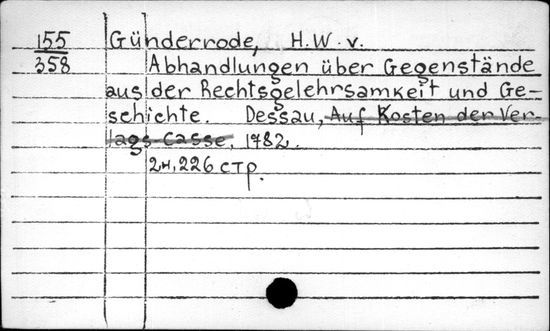 155 Günderrode, H.W. v.
358 Abhandlungen über Gegenstände
aus der Rechtsgelehrsamkeit und Ge-
schichte. Dessau, Auf Kosten der Ver-
lags Casse, 1782.
2н, 226 стр.